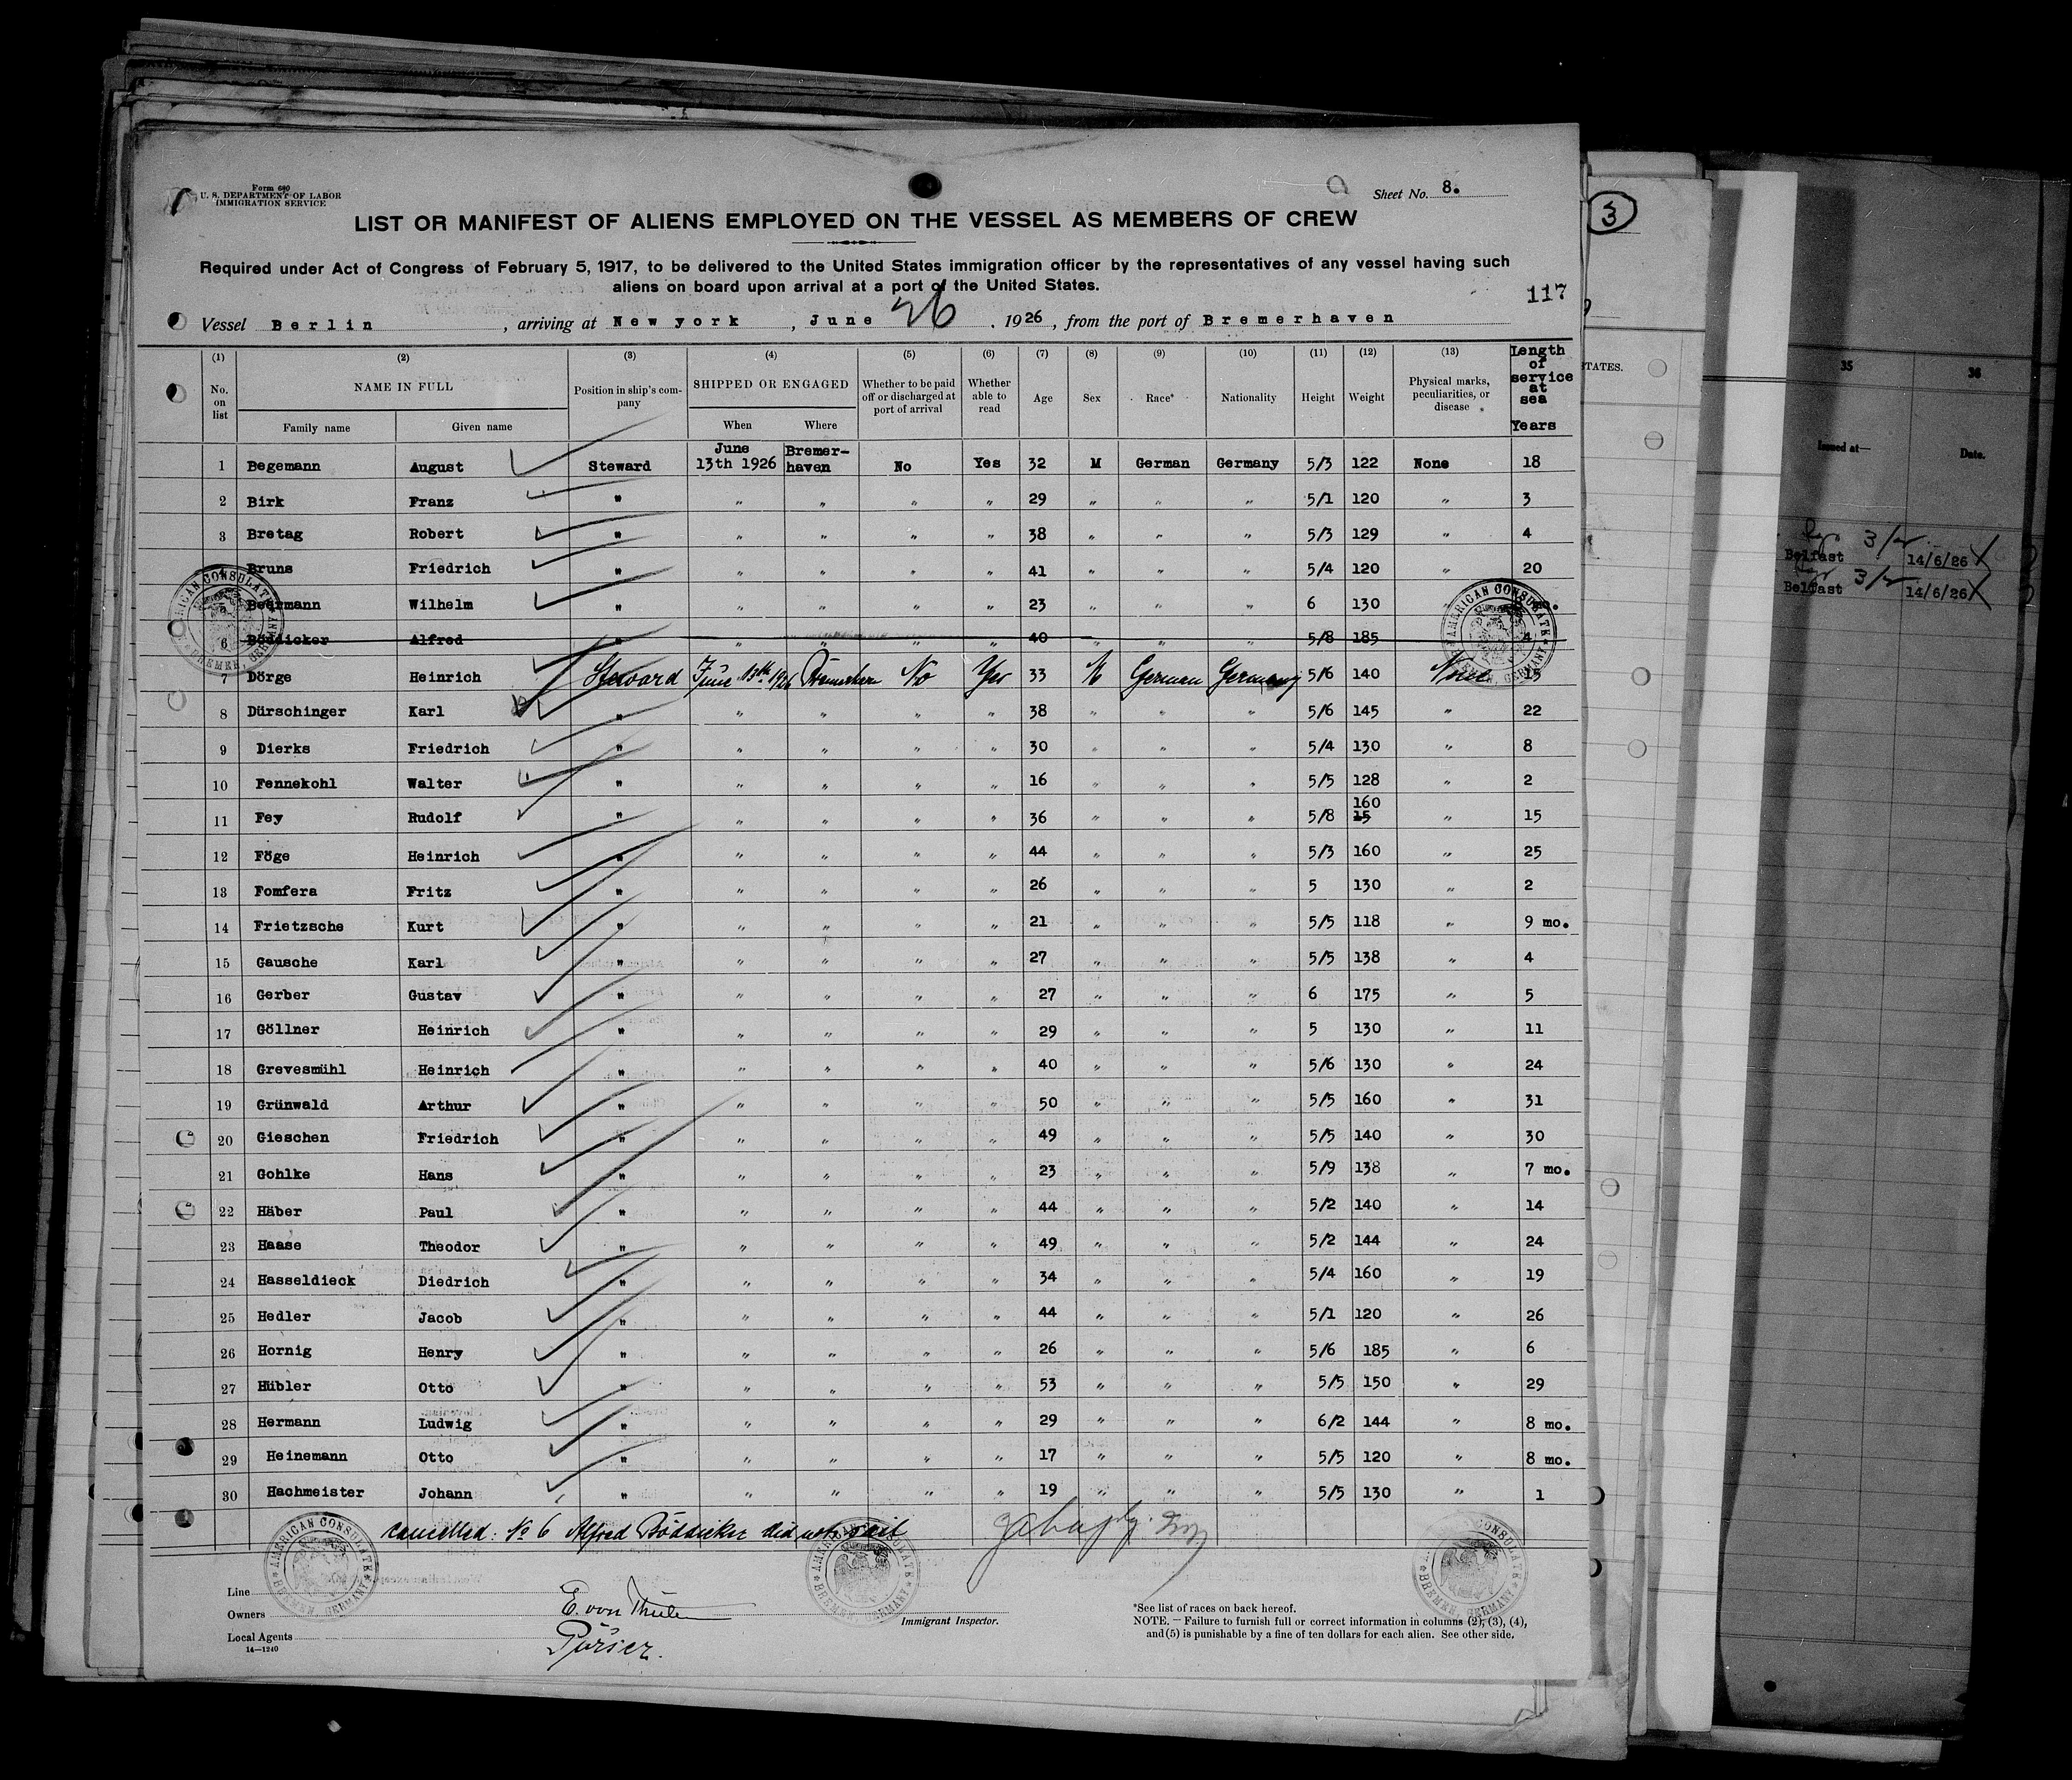 Form 680
U. S. DEPARTMENT OF LABOR
IMMIGRATION SERVICE
Sheet No. 8.
3
LIST OR MANIFEST OF ALIENS EMPLOYED ON THE VESSEL AS MEMBERS OF CREW
Required under Act of Congress of February 5, 1917, to be delivered to the United States immigration officer by the representatives of any vessel having such
aliens on board upon arrival at a port of the United States.
117
Vessel Berlin, arriving at New york, June 26, 1926, from the port of Bremerhaven
(1) (2) (3) (4) (5) (6) (7) (8) (9) (10) (11) (12) (13) Length of service at sea Years
No. on list NAME IN FULL Position in ship's company SHIPPED OR ENGAGED Whether to be paid off or discharged at port of arrival Whether able to read Age Sex Race* Nationality Height Weight Physical marks, peculiarities, or disease
Family name Given name When Where
1 Begemann August Steward June 13th 1926 Bremer-haven No Yes 32 M German Germany 5/3 122 None 18
2 Birk Franz " " " " " 29 " " " 5/1 120 " 3
3 Bretag Robert " " " " " 38 " " " 5/3 129 " 4
4 Bruns Friedrich " " " " " 41 " " " 5/4 120 " 20
5 Beermann Wilhelm " " " " " 23 " " " 6 130
6 Böddicker Alfred " " " " " 40 " " " 5/8 185 4
7 Dörge Heinrich Steward June 13th 1926 Bremerhaven No Yes 33 M German Germany 5/6 140 None 15
8 Dürschinger Karl " " " " " 38 " " " 5/6 145 " 22
9 Dierks Friedrich " " " " " 30 " " " 5/4 130 " 8
10 Fennekohl Walter " " " " " 16 " " " 5/5 128 " 2
11 Fey Rudolf " " " " " 36 " " " 5/8 160 15 " 15
12 Föge Heinrich " " " " " 44 " " " 5/3 160 " 25
13 Fomfera Fritz " " " " " 26 " " " 5 130 " 2
14 Frietzsche Kurt " " " " " 21 " " " 5/5 118 " 9 mo.
15 Gausche Karl " " " " " 27 " " " 5/5 138 " 4
16 Gerber Gustav " " " " " 27 " " " 6 175 " 5
17 Göllner Heinrich " " " " " 29 " " " 5 130 " 11
18 Grevesmühl Heinrich " " " " " 40 " " " 5/6 130 " 24
19 Grünwald Arthur " " " " " 50 " " " 5/5 160 " 31
20 Gieschen Friedrich " " " " " 49 " " " 5/5 140 " 30
21 Gohlke Hans " " " " " 23 " " " 5/9 138 " 7 mo.
22 Häber Paul " " " " " 44 " " " 5/2 140 " 14
23 Haase Theodor " " " " " 49 " " " 5/2 144 " 24
24 Hasseldieck Diedrich " " " " " 34 " " " 5/4 160 " 19
25 Hedler Jacob " " " " " 44 " " " 5/1 120 " 26
26 Hornig Henry " " " " " 26 " " " 5/6 185 " 6
27 Hübler Otto " " " " " 53 " " " 5/5 150 " 29
28 Hermann Ludwig " " " " " 29 " " " 6/2 144 " 8 mo.
29 Heinemann Otto " " " " " 17 " " " 5/5 120 " 8 mo.
30 Hachmeister Johann " " " " " 19 " " " 5/5 130 " 1
cancelled: No 6 Alfred Böddicker did not sail
AMERICAN CONSULATE BREMEN, GERMANY
AMERICAN CONSULATE BREMEN, GERMANY
AMERICAN CONSULATE BREMEN, GERMANY
AMERICAN CONSULATE BREMEN, GERMANY
AMERICAN CONSULATE BREMEN, GERMANY
Line
Owners
Local Agents
14—1240
E. von Thülen
Purser.
Immigrant Inspector.
*See list of races on back hereof.
NOTE. — Failure to furnish full or correct information in columns (2), (3), (4),
and (5) is punishable by a fine of ten dollars for each alien. See other side.
TATES.
35 36
Issued at— Date.
3/
Belfast 14/6/26 X
3/
Belfast 14/6/26 X